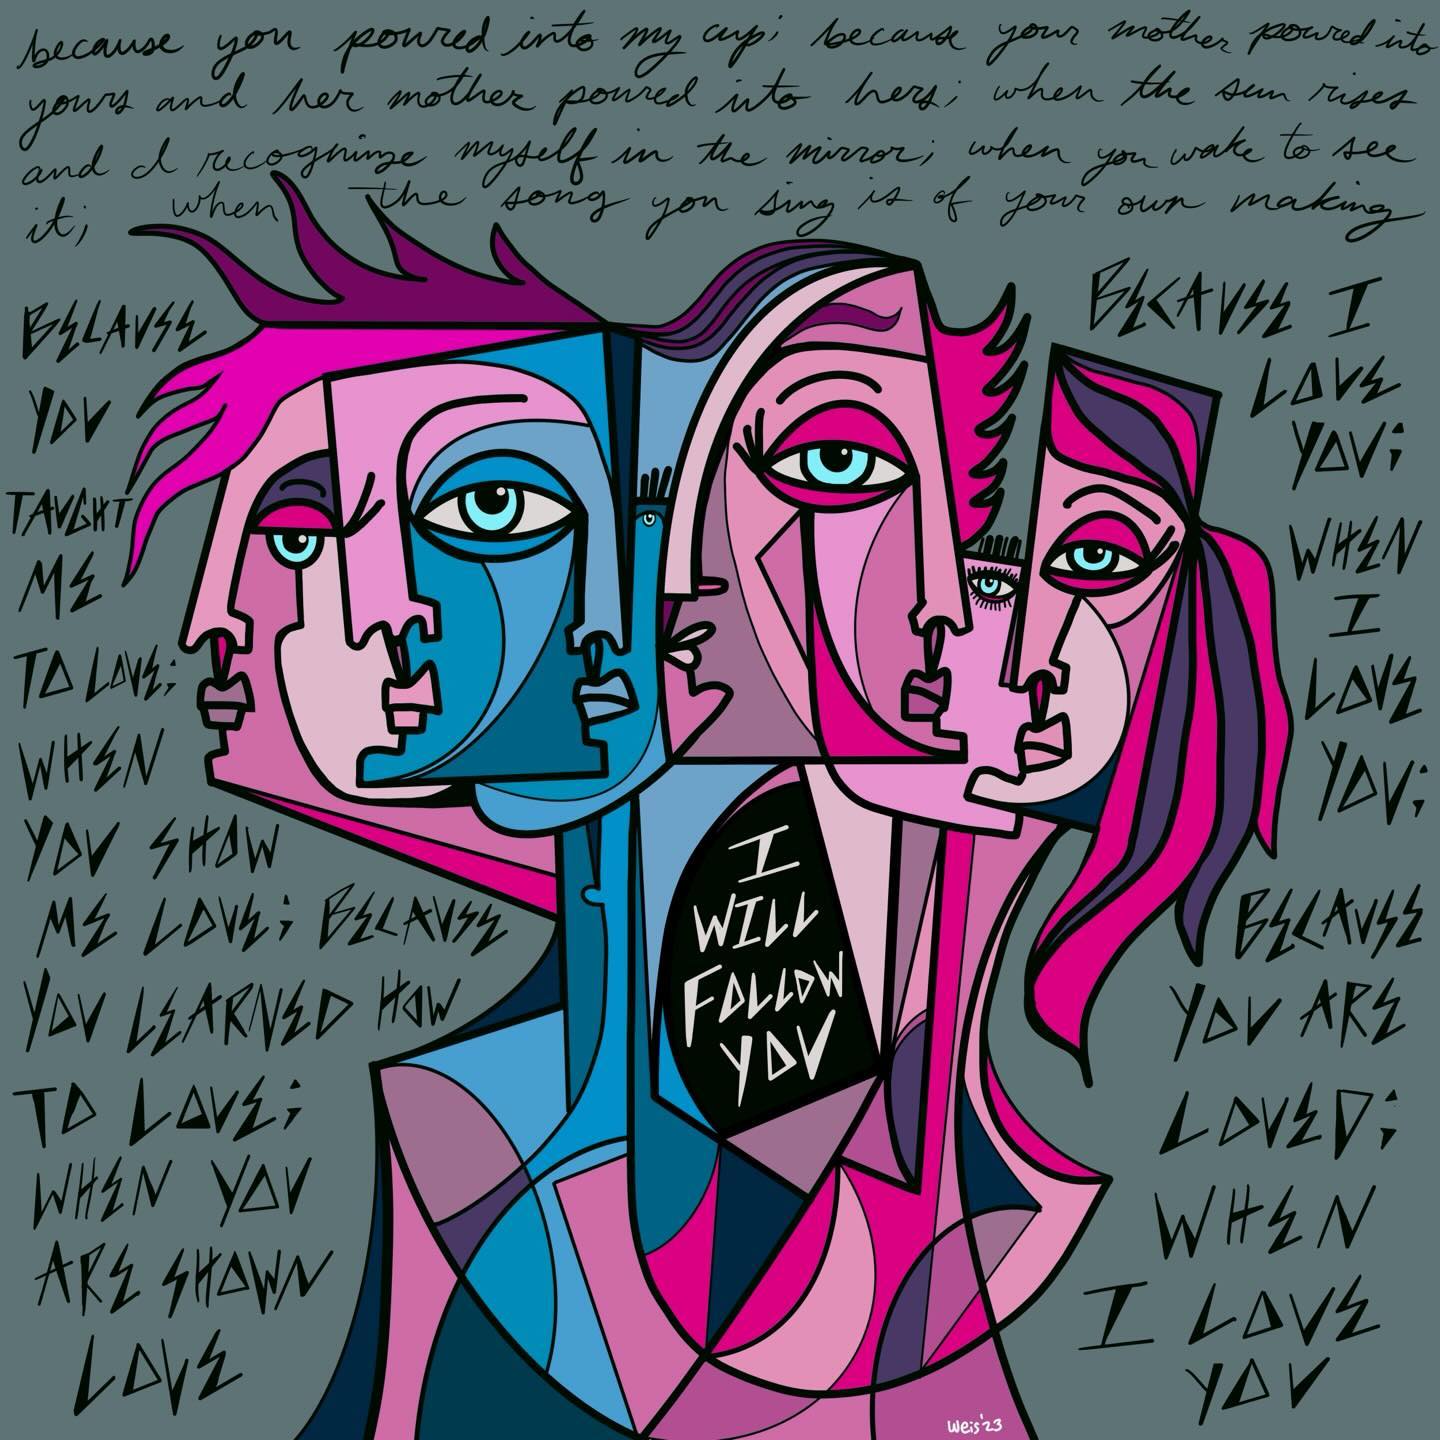 because you poured into my cup; because your mother poured into
yours and her mother poured into hers; when the sun rises
and I recognize myself in the mirror; when you wake to see
it; when the song you sing is of your own making
BECAUSE
YOU
TAUGHT
ME
TO LOVE;
WHEN
YOU SHOW
ME LOVE; BECAUSE
YOU LEARNED HOW
TO LOVE;
WHEN YOU
ARE SHOWN
LOVE
I
WILL
FOLLOW
YOU
BECAUSE I
LOVE
YOU;
WHEN
I
LOVE
YOU;
BECAUSE
YOU ARE
LOVED;
WHEN
I LOVE
YOU
Weis'23